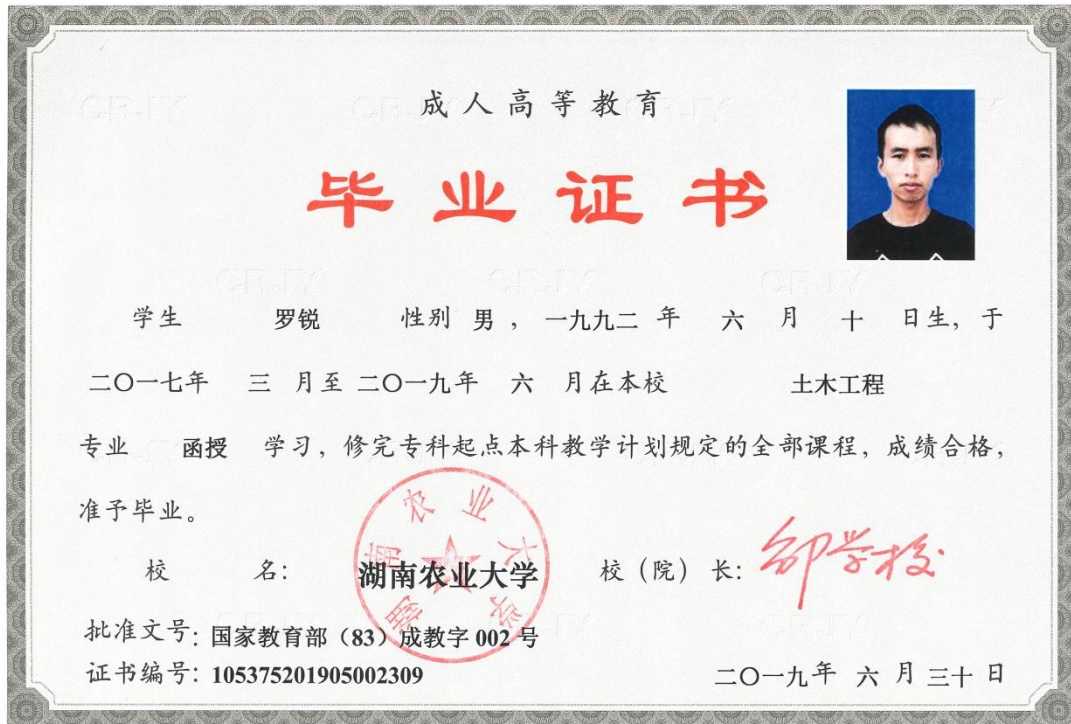 成人高等教育
毕业证书
学生 罗锐 性别 男，一九九二 年 六 月 十 日生，于
二〇一七年 三 月至 二〇一九年 六 月在本校 土木工程
专业 函授 学习，修完专科起点本科教学计划规定的全部课程，成绩合格，
准予毕业。
校 名： 湖南农业大学 校（院）长：
湖南农业大学
批准文号：国家教育部（83）成教字 002 号
证书编号：105375201905002309 二〇一九年 六 月 三十 日